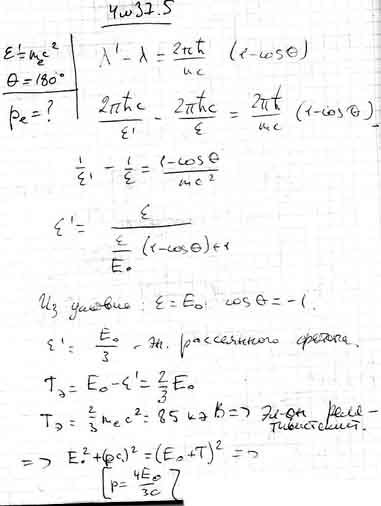 Чов37.5
ε' = m_e c²
θ = 180°
p_e = ?
λ' − λ = 2πħ/mc (1−cosθ)
2πħc/ε' − 2πħc/ε = 2πħ/mc (1−cosθ).
1/ε' − 1/ε = (1−cosθ)/mc²
ε' = ε / (ε/E₀ (1−cosθ)+1)
Из условия: ε = E₀ cosθ = −1.
ε' = E₀/3 - эн. рассеянного фотона.
Tэ = E₀ − ε' = 2/3 E₀
Tэ = 2/3 m_e c² = 85 кэВ => Эл-он реля-
тивистский.
=> E₀² + (pc)² = (E₀+T)² =>
[p = 4E₀/3c]